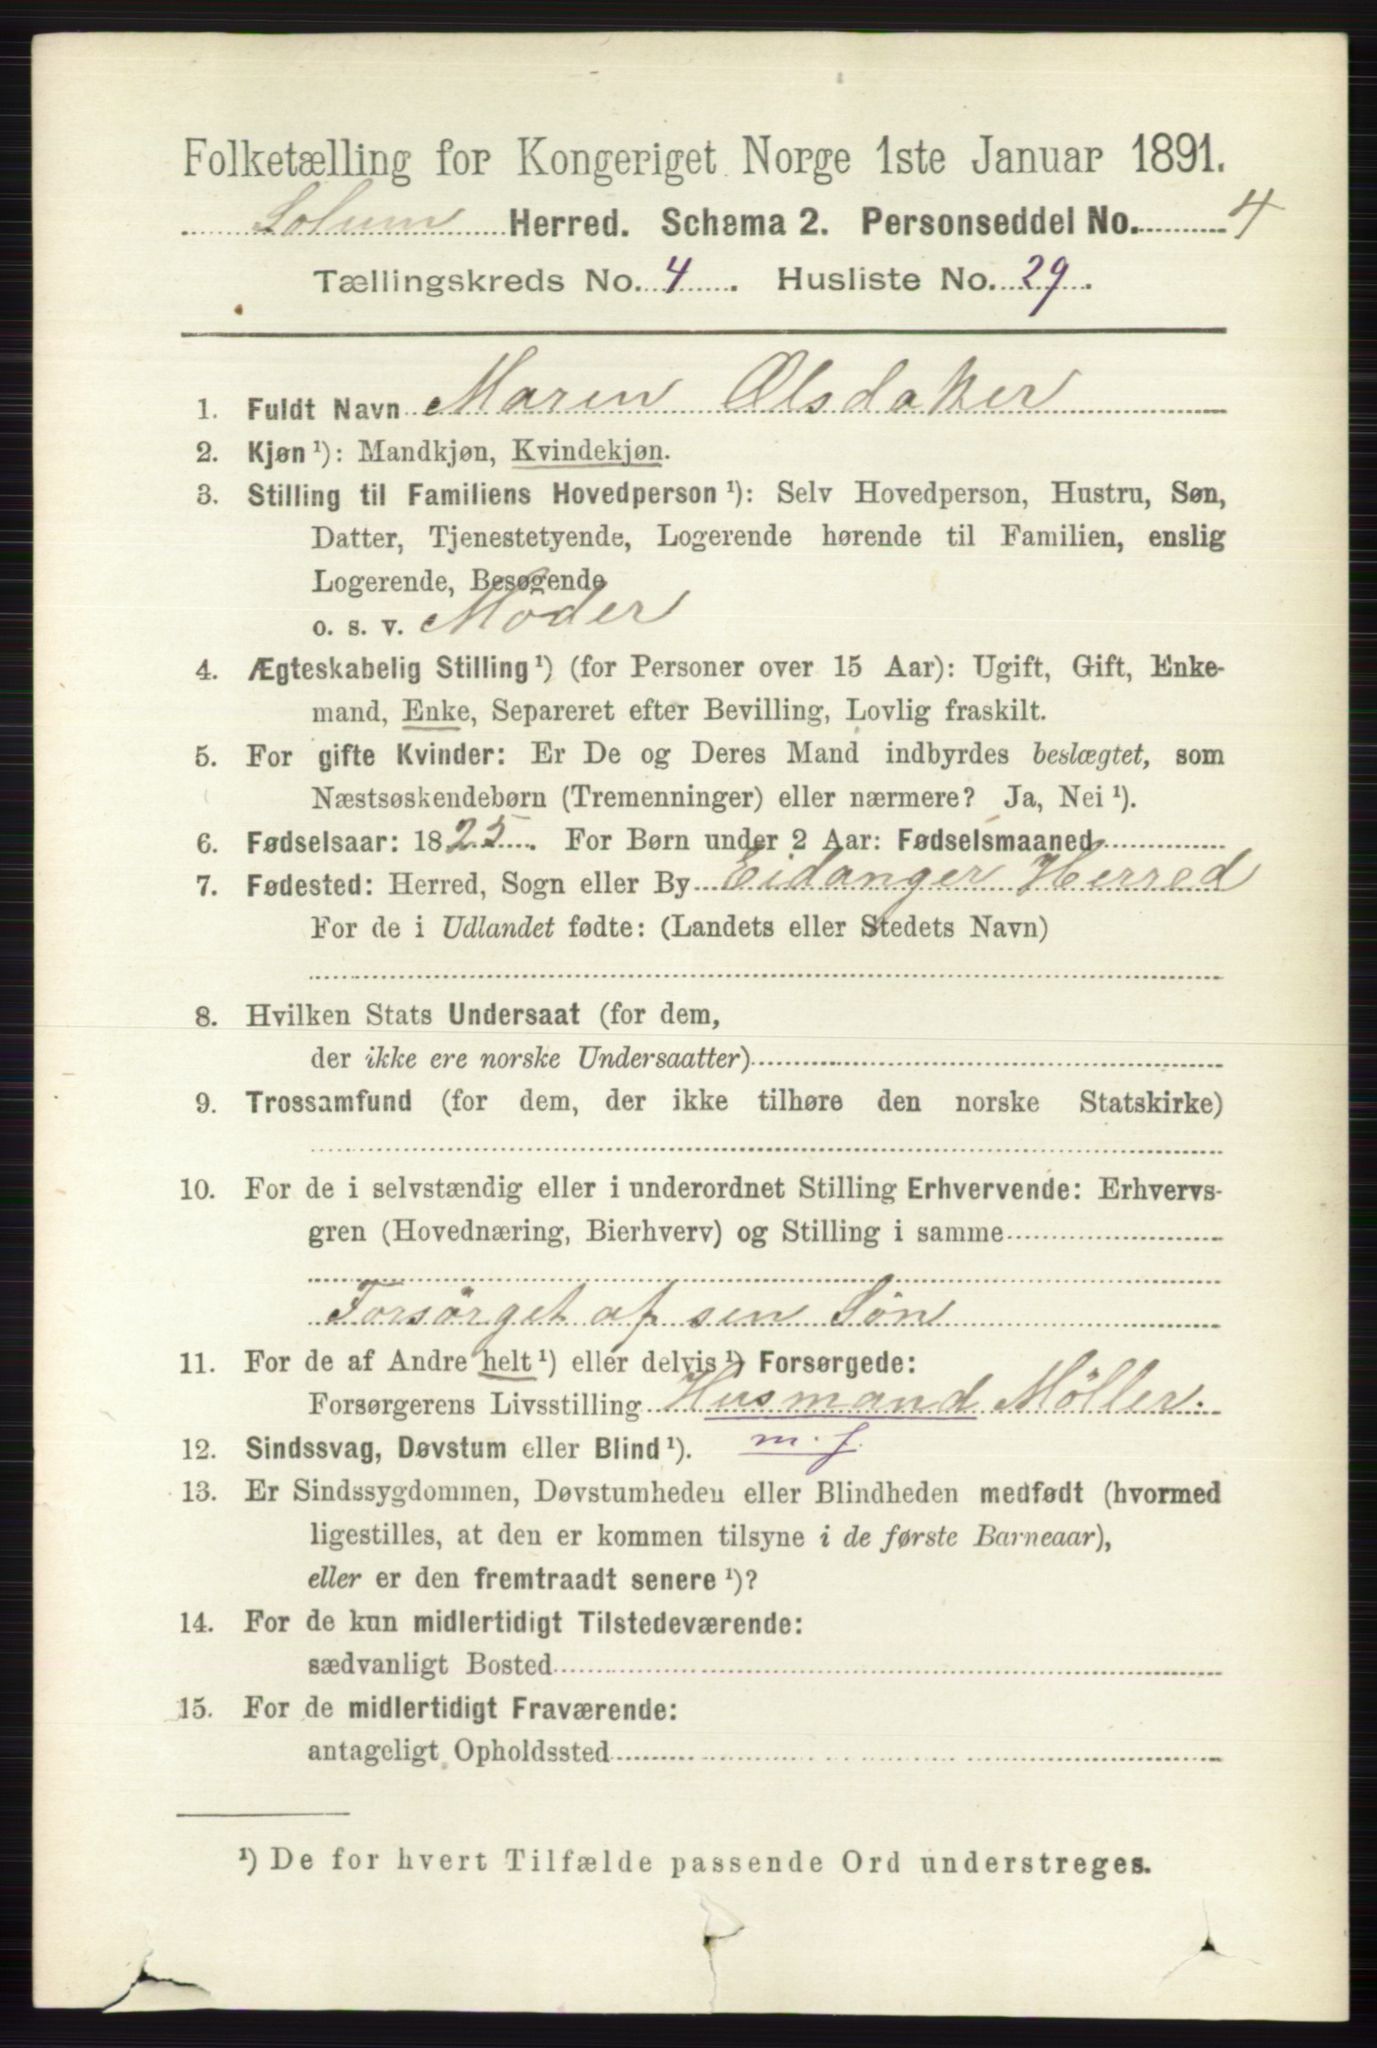 Folketælling for Kongeriget Norge 1ste Januar 1891.
Solum Herred. Schema 2. Personseddel No. 4
Tællingskreds No. 4. Husliste No. 29.
1. Fuldt Navn Maren Ølsdaker
2. Kjøn ¹): Mandkjøn, Kvindekjøn.
3. Stilling til Familiens Hovedperson ¹): Selv Hovedperson, Hustru, Søn,
Datter, Tjenestetyende, Logerende hørende til Familien, enslig
Logerende, Besøgende
o. s. v. Moder
4. Ægteskabelig Stilling ¹) (for Personer over 15 Aar): Ugift, Gift, Enke-
mand, Enke, Separeret efter Bevilling, Lovlig fraskilt.
5. For gifte Kvinder: Er De og Deres Mand indbyrdes beslægtet, som
Næstsøskendebørn (Tremenninger) eller nærmere? Ja, Nei ¹).
6. Fødselsaar: 1825. For Børn under 2 Aar: Fødselsmaaned
7. Fødested: Herred, Sogn eller By Eidanger Herred
For de i Udlandet fødte: (Landets eller Stedets Navn)
8. Hvilken Stats Undersaat (for dem,
der ikke ere norske Undersaatter)
9. Trossamfund (for dem, der ikke tilhøre den norske Statskirke)
10. For de i selvstændig eller i underordnet Stilling Erhvervende: Erhvervs-
gren (Hovednæring, Bierhverv) og Stilling i samme
Forsörget af sen Sön
11. For de af Andre helt ¹) eller delvis ¹) Forsørgede:
Forsørgerens Livsstilling Husmand Möller.
m. j.
12. Sindssvag, Døvstum eller Blind ¹).
13. Er Sindssygdommen, Døvstumheden eller Blindheden medfødt (hvormed
ligestilles, at den er kommen tilsyne i de første Barneaar),
eller er den fremtraadt senere ¹)?
14. For de kun midlertidigt Tilstedeværende:
sædvanligt Bosted
15. For de midlertidigt Fraværende:
antageligt Opholdssted
¹) De for hvert Tilfælde passende Ord understreges.